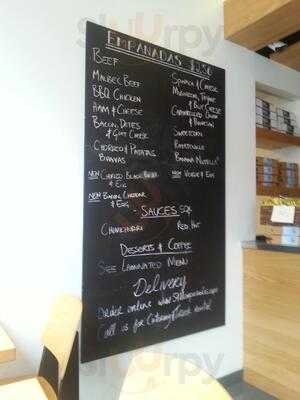 EMPANADAS $3.50
BEEF
MALBEC BEEF
BBQ CHICKEN
HAM & CHEESE
BACON, DATES
& GOAT CHEESE
CHORIZO & PATATAS
BRAVAS
NEW CHARLIE'S BLACK
& EGG
NEW BACON, CHEDDAR
& EGG
SPINACH & CHEESE
MUSHROOM, THYME
& BLUE CHEESE
CARAMELIZED ONION
& PARMESAN
SWEETCORN
RATATOUILLE
BANANA NUTELLA
NEW VERDE & EGG
- SAUCES 50¢
CHIMICHURRI
RED HOT
DESSERTS & COFFEE
SEE LAMINATED MENU
Delivery
Order online www.
Call us for Catering